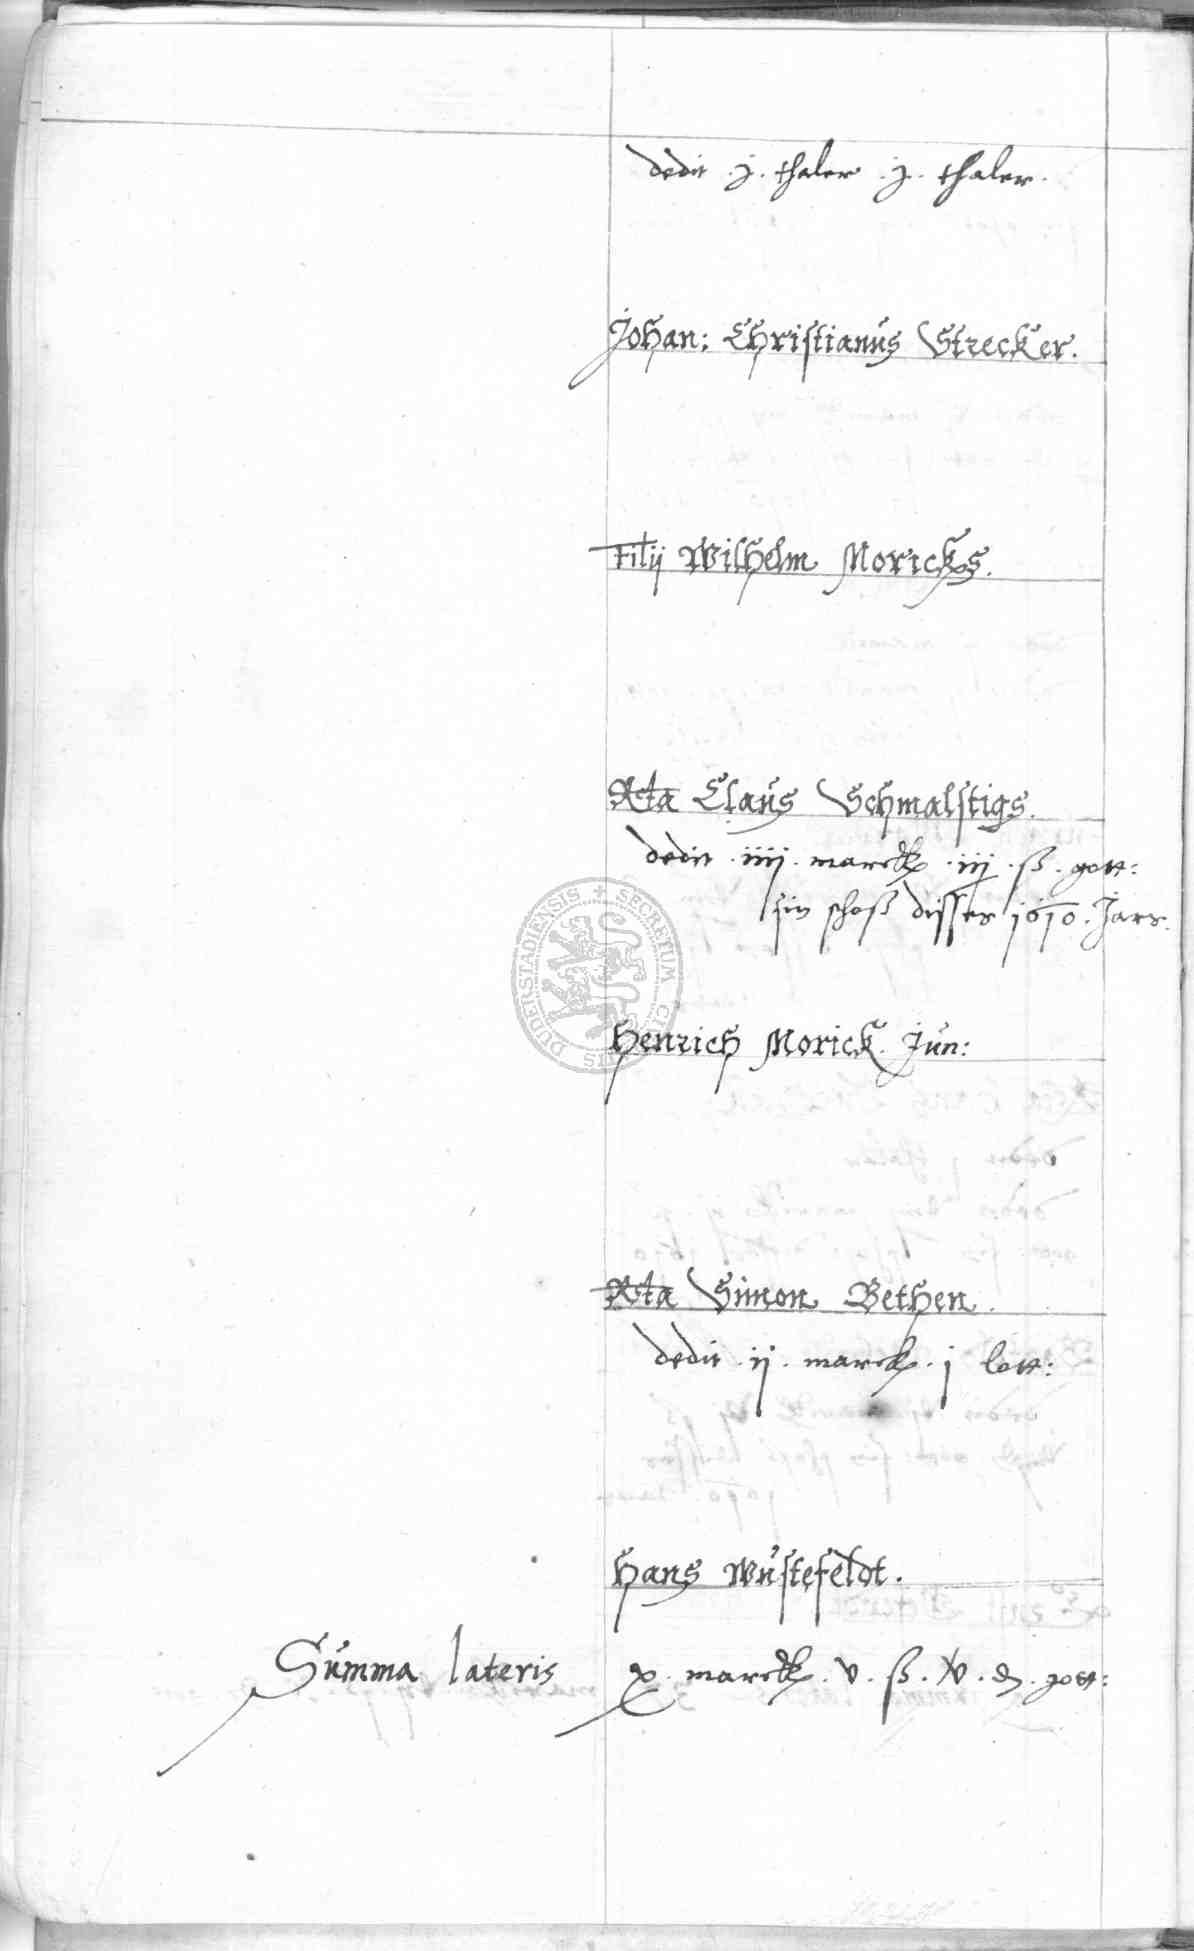 dedit .j. thaler .j. thaler.
Johan: Christianus Strecker.
Filij Wilhelm Moricks.
Rta Claus Schmalstigs.
dedit .iiij. marck .iij. ß. gott:
sin schoß disser 1610. Jars.
DUDERSTADIENSIS + SECRETUM CIVITATIS
Henrich Morick. Jun:
Rta Simon Bethen.
dedit .ij. marck. j lott:
Hans Wüstefeldt.
Summa lateris x. marck. v. ß. v. ₰. gott: